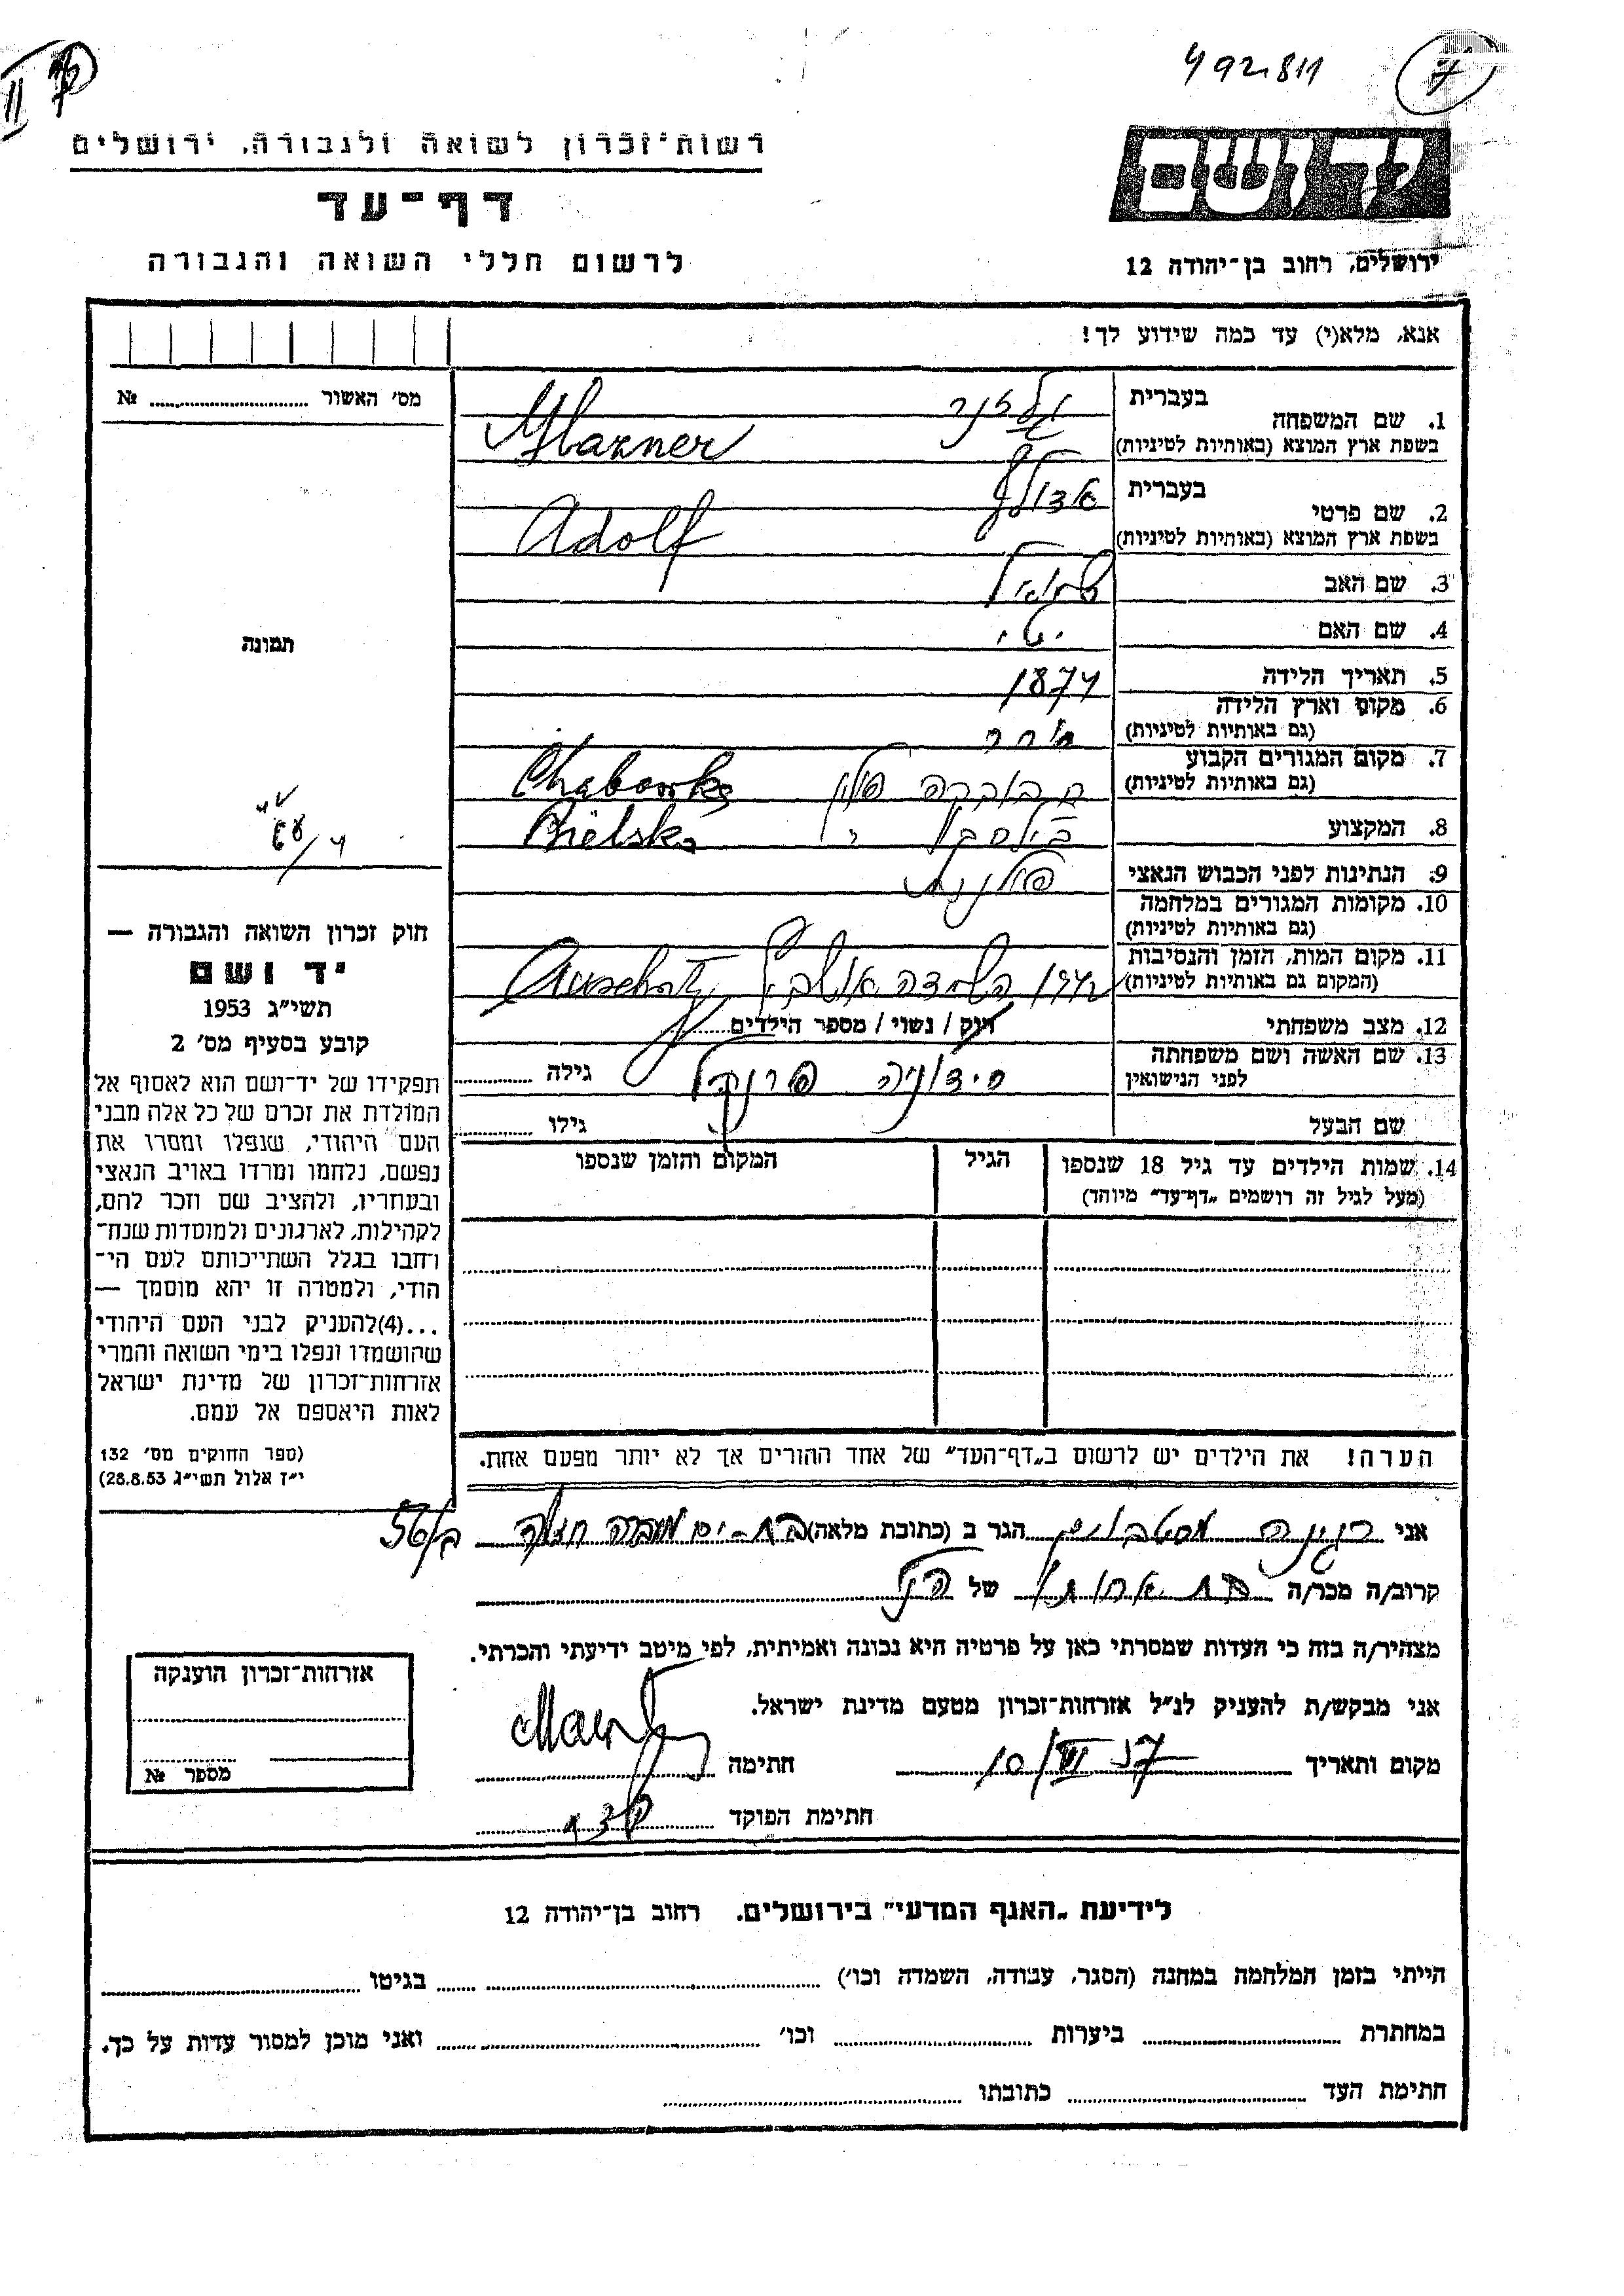 492811
7
II
רשות־זכרון לשואה ולגבורה, ירושלים
דף־עד
לרשום חללי השואה והגבורה
יד ושם
ירושלים, רחוב בן־יהודה 12
אנא, מלא(י) עד כמה שידוע לך!
מס' האשור № ........
1. שם המשפחה
בעברית
גלזנר
בשפת ארץ המוצא (באותיות לטיניות)
Glazner
2. שם פרטי
בעברית
אדולף
בשפת ארץ המוצא (באותיות לטיניות)
Adolf
3. שם האב
שמואל
4. שם האם
יטי
5. תאריך הלידה
1874
6. מקום וארץ הלידה
(גם באותיות לטיניות)
7. מקום המגורים הקבוע
(גם באותיות לטיניות)
חבובקה פולין
Chabowka
8. המקצוע
Bielsko
9. הנתינות לפני הכבוש הנאצי
פולנית
10. מקומות המגורים במלחמה
(גם באותיות לטיניות)
11. מקום המות, הזמן והנסיבות
(המקום גם באותיות לטיניות)
השמדה
12. מצב משפחתי
רווק / נשוי / מספר הילדים........
13. שם האשה ושם משפחתה
לפני הנישואין
סידוניה פרנקל
גילה ........
שם הבעל
גילו ........
14. שמות הילדים עד גיל 18 שנספו
(מעל לגיל זה רושמים „דף־עד” מיוחד)
הגיל
המקום והזמן שנספו
תמונה
חוק זכרון השואה והגבורה —
יד ושם
תשי״ג 1953
קובע בסעיף מס' 2
תפקידו של יד־ושם הוא לאסוף אל
המולדת את זכרם של כל אלה מבני
העם היהודי, שנפלו ומסרו את
נפשם, נלחמו ומרדו באויב הנאצי
ובעוזריו, ולהציב שם וזכר להם,
לקהילות, לארגונים ולמוסדות שנח־
רבו בגלל השתייכותם לעם הי־
הודי, ולמטרה זו יהא מוסמך —
...(4)להעניק לבני העם היהודי
שהושמדו ונפלו בימי השואה והמרי
אזרחות־זכרון של מדינת ישראל
לאות היאספם אל עמם.
(ספר החוקים מס' 132
י״ז אלול תשי״ג 28.8.53)
הערה! את הילדים יש לרשום ב„דף־העד” של אחד ההורים אך לא יותר מפעם אחת.
אני רגינה הגר ב (כתובת מלאה) בת-ים
קרוב/ה מכר/ה בת אחות של הנ״ל
מצהיר/ה בזה כי העדות שמסרתי כאן על פרטיה היא נכונה ואמיתית, לפי מיטב ידיעתי והכרתי.
אני מבקש/ת להעניק לנ״ל אזרחות־זכרון מטעם מדינת ישראל.
מקום ותאריך 10/VI 57 חתימה
חתימת הפוקד
אזרחות־זכרון הוענקה
מספר №
לידיעת „האגף המדעי” בירושלים. רחוב בן־יהודה 12
הייתי בזמן המלחמה במחנה (הסגר, עבודה, השמדה וכו') ........ בגיטו ........
במחתרת ........ ביערות ........ וכו' ........ ואני מוכן למסור עדות על כך.
חתימת העד ........ כתובתו ........